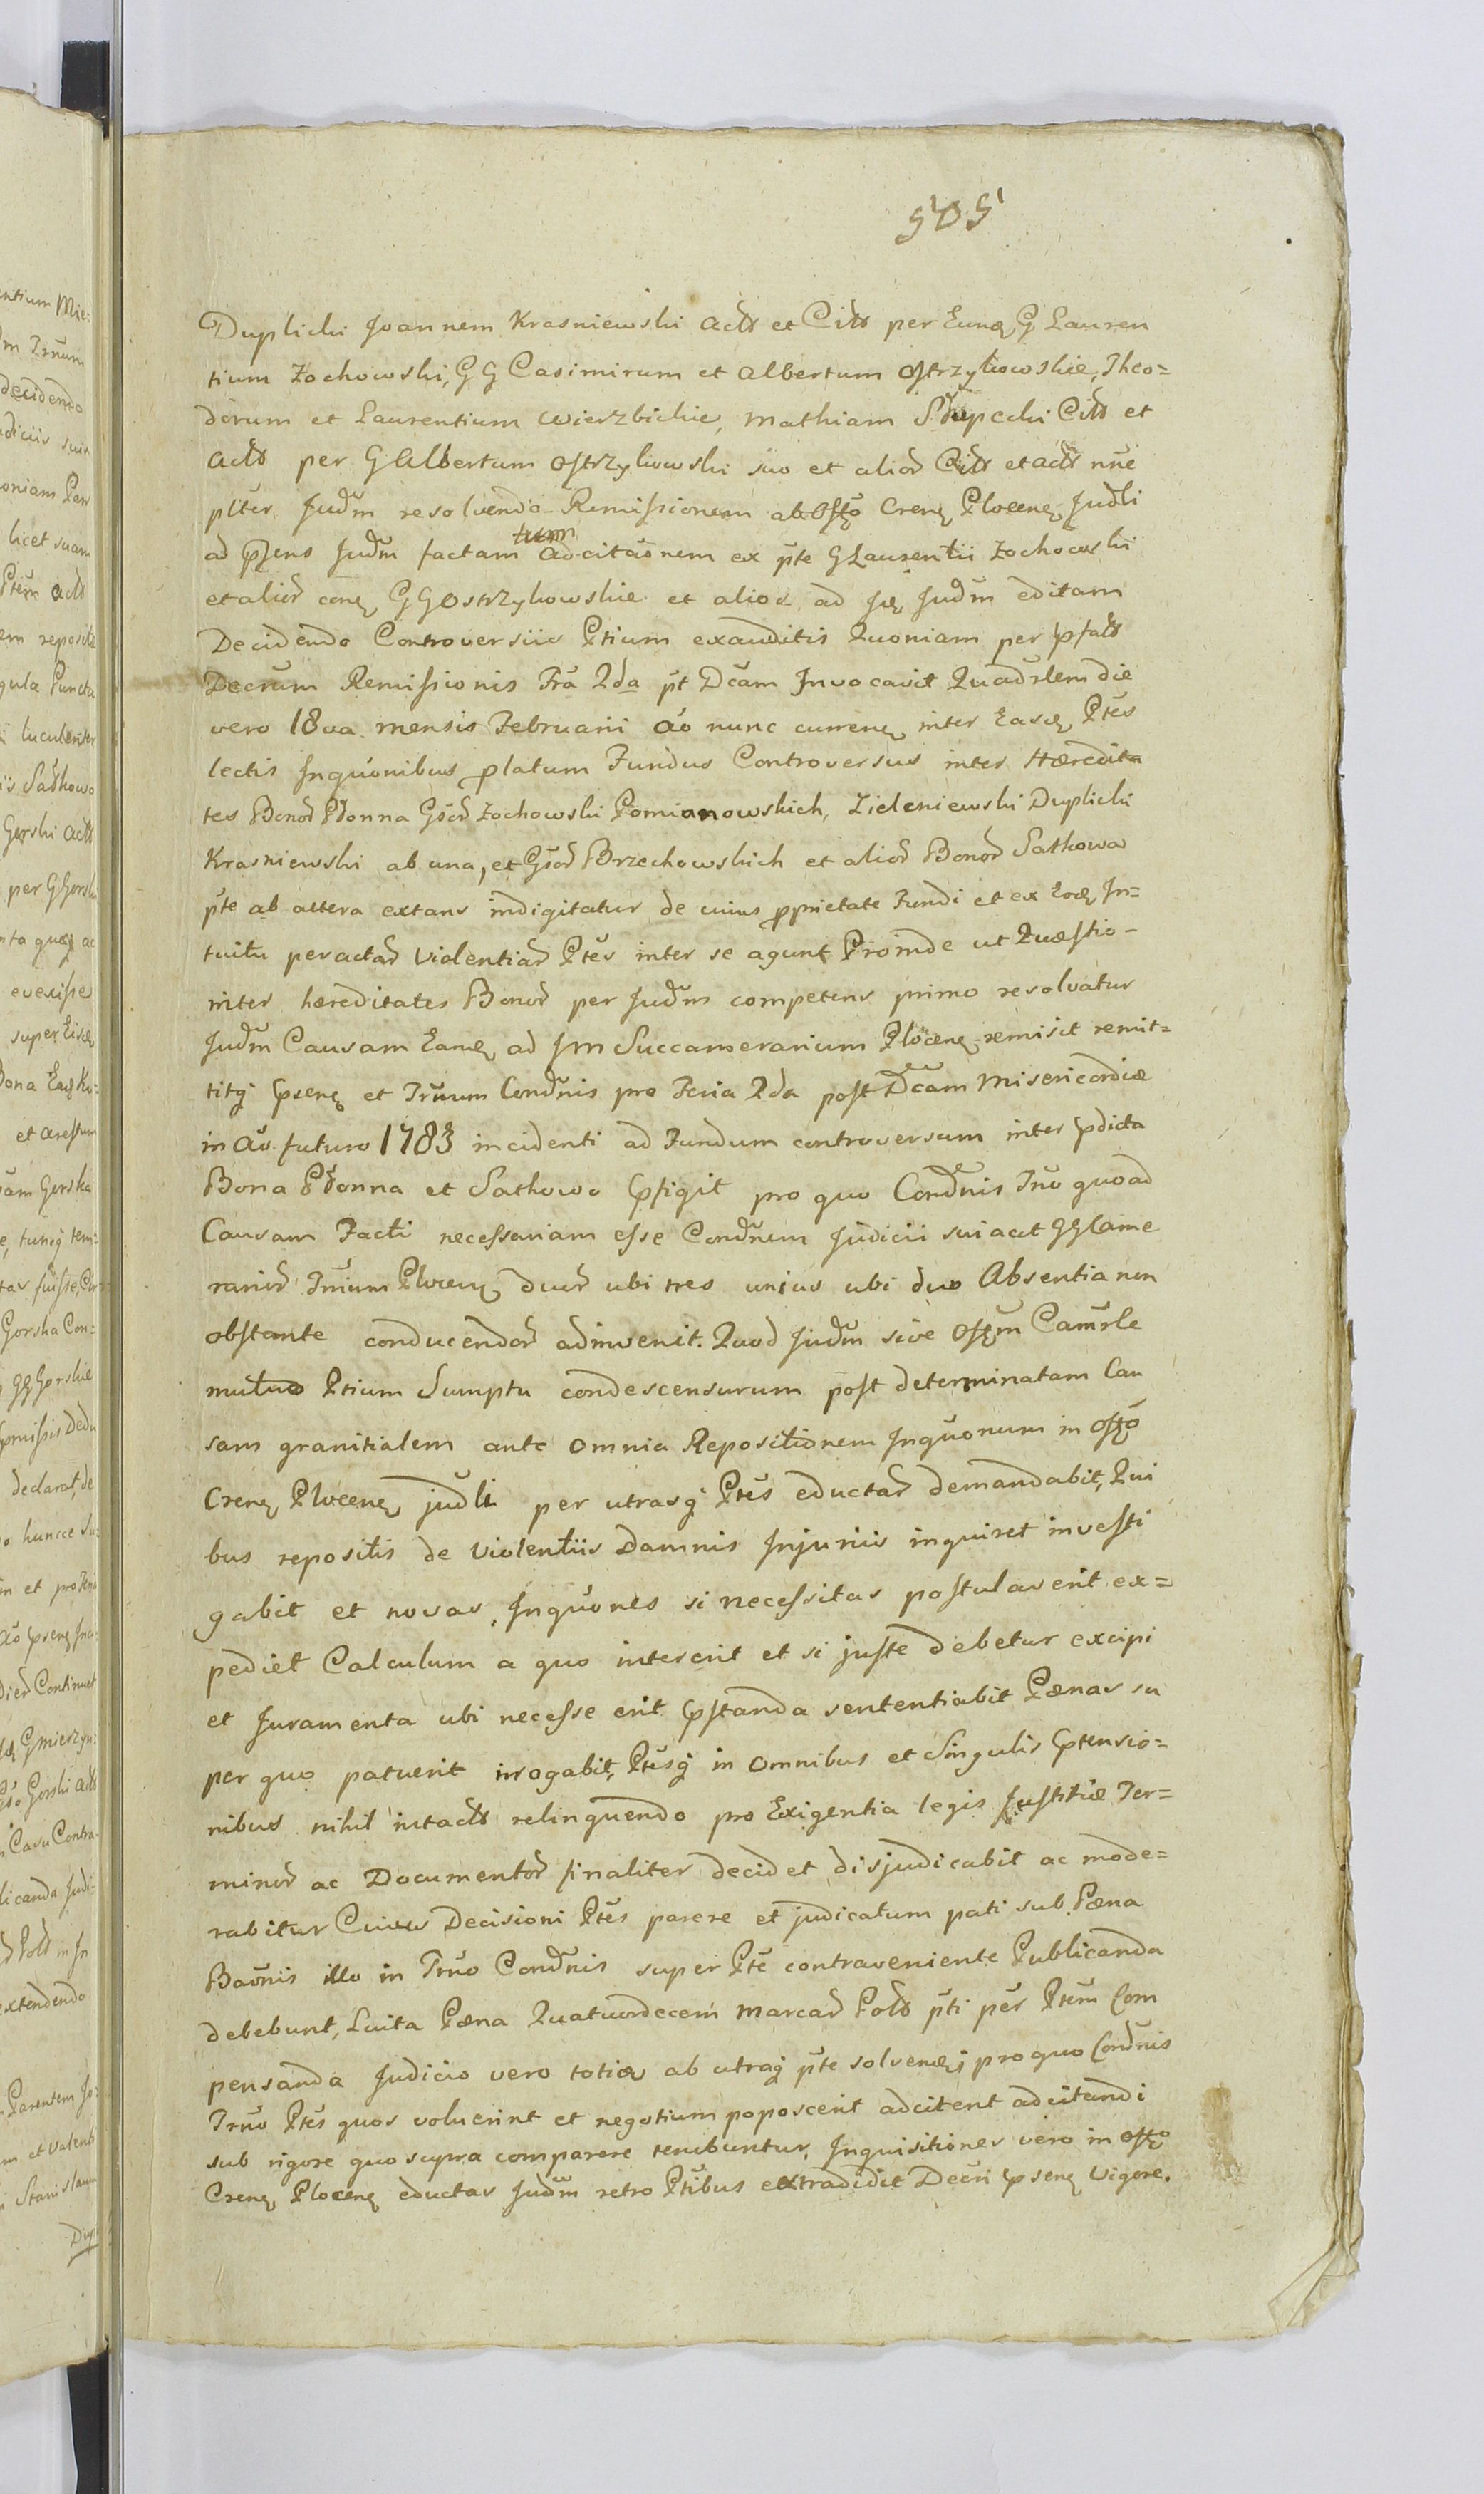 505
Duplicki Joannem Krasniewski Acts et Cits per Eunđ G Lauren
tium Zochowski, GG Casimirum et Albertum Ostrzykowskie, Theo=
dorum et Laurentium Wierzbickie, Mathiam Słupecki Cits et
Acts per G Albertum Ostrzykowski suo et alior Cits et acts nñe
plter Judm resolvendo Remissionem ab Offo Crenę Plocenę Judli
ad psens Judm factam tum adcitaonem ex pte G Laurentii Zochowski
et alior conę GG Ostrzykowskie et alios ad Ję Judm editam
Decidendo Controversiis Ptium exauditis Quoniam per pfats
Decrum Remissionis Fra 2da pt Dcam Invocavit Quadrlem die
vero 18va mensis Februarii Ao nunc currenę inter Easdę Ptes
lectis Inquonibus platum Fundus Controversus inter Hæredita
tes Bonor Płonna Gsor Zochowski Pomianowskich, Zieleniewski Duplicki
Krasniewski ab una, et Gsor Brzechowskich et alior Bonor Satkowa
pte ab altera extans indigitatur de cuius pprietate Fundi et ex Eodę In=
tuitu peractar Violentiar Ptes inter se agunt Proinde ut Quæstio-
inter hæreditates Bonor per Judm competens primo resolvatur
Judm Causam Eamdę ad Jm Succamerarium Plocenę remisit remit=
titq psenę et Trnum Condnis pro Feria 2da post Dcam Misericordiæ
in Ao futuro 1783 incidenti ad Fundum controversum inter pdicta
Bona Płonna et Satkowo pfigit pro quo Condnis Trno quoad
Causam Facti necessariam esse Condnem Judicii sui acit GG Came
rarior Trnium Plocenę duor ubi tres unius ubi duo Absentia non
obstante conducendor adinvenit. Quod Judm sive Offm Camrle
mutuo Ptium Sumptu condescensurum post determinatam Cau
sam granitialem ante omnia Repositionem Inquonum in Offo
Crenę Plocenę judli per utrasq Ptes eductar demandabit, Qui
bus repositis de Violentiis Damnis Injuriis inquiret investi
gabit et novas Inquones si necessitas postulaverit ex=
pediet Calculum a quo intererit et si juste debetur excipi
et Juramenta ubi necesse erit pstanda sententiabit Pænas su
per quo patuerit irrogabit, Ptesq in omnibus et Singulis ptensio=
nibus nihil intacts relinquendo pro Exigentia legis Justitiæ Ter=
minor ac Documentor finaliter decidet disjudicabit ac mode=
rabitur Cuius Decisioni Ptes parere et judicatum pati sub Pæna
Baonis illo in Trno Condnis super Pte contraveniente Publicanda
debebunt, Luita Pæna Quatuordecem Marcar Pols pti per Ptem Com
pensanda Judicio vero toties ab utraq pte solvenđ; pro quo Condnis
Trno Ptes quos voluerint et negotium poposcerit adcitent adcitandi
sub rigore quo supra comparere tenebuntur, Inquisitiones vero in Offo
Crenę Plocenę eductas Judm retro Ptibus extradidit Decri psenę Vigore.